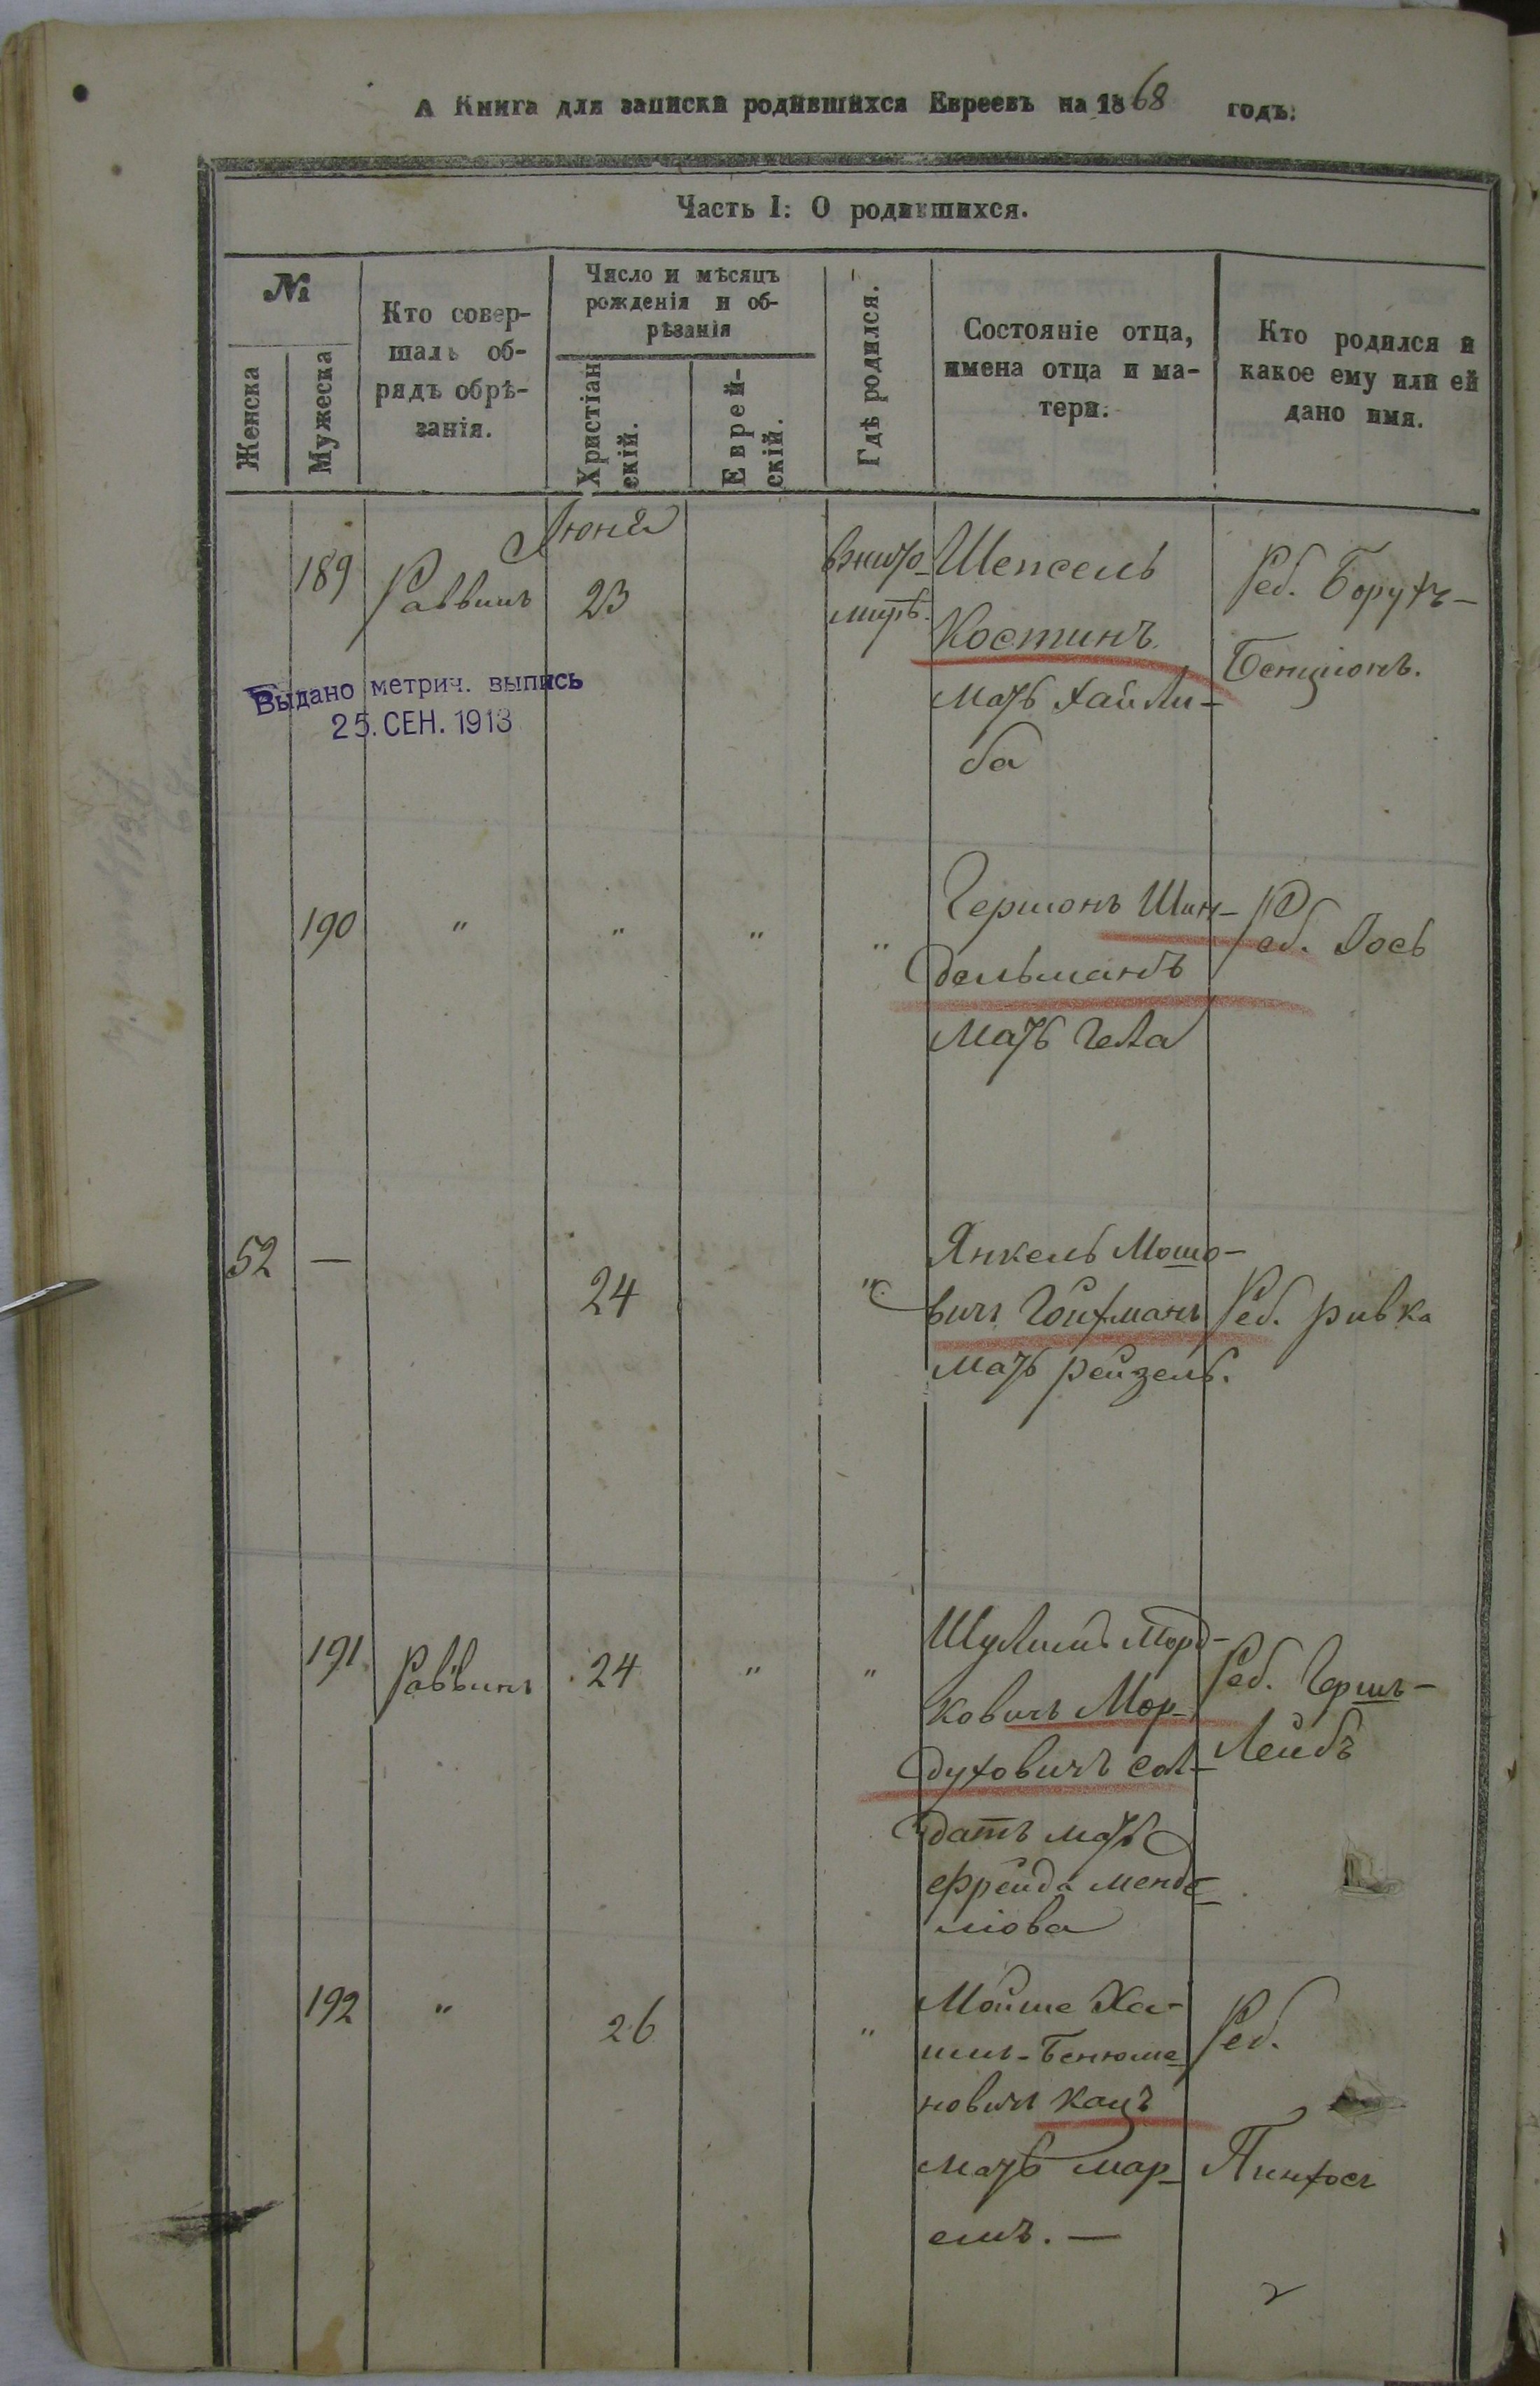 А Книга для записки родившихся Евреевъ на 1868 годъ:
Часть I: О родившихся.
№
Женска
Мужеска
Кто совер-
шалъ об-
рядъ обрѣ-
занія.
Число и мѣсяцъ
рожденія и об-
рѣзанія
Христіан
скій.
Еврей-
скій.
Гдѣ родился.
Состояніе отца,
имена отца и ма-
тери.
Кто родился и
какое ему или ей
дано имя.
Июня
189
Раввинъ
23
вжито-
мирѣ.
Шепсель
Костинъ
мать Хай Ли-
ба
Реб. Борухъ-
Бенціонъ.
Выдано метрич. выпись
25. СЕН. 1913
190
"
"
"
"
Гершонъ Шин-
дельманъ
мать Гела
Реб. Іось
52
—
24
"
Янкель Мошо-
вичъ Гойхманъ
мать рейзель.
Реб. ривка
191
Раввинъ
24
"
"
Шулимъ Морд-
ковичъ Мор-
духовичъ сол-
датъ мать
Фрейда менде-
ліова
Реб. Гершъ-
Лейбъ
192
"
26
"
Мойше Ха-
имъ-Бенюме
новичъ кацъ
мать мар-
емъ. —
Реб.
Пинхосъ